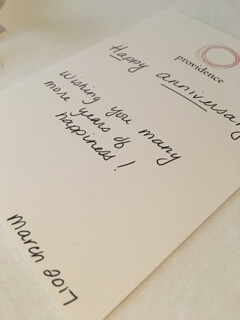 providence
Happy anniversary
Wishing you many
more years of
happiness!
march 2017